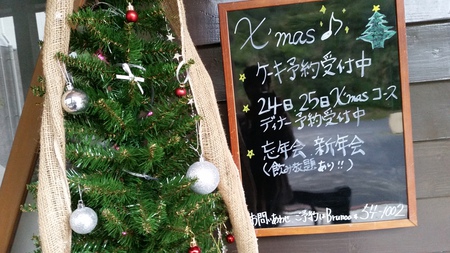 X'mas♪
ケーキ予約受付中
24日、25日X'masコース
ディナー予約受付中
忘年会 新年会
(飲み放題あり!!)
お問い合わせ・ご予約はBrunoまで 54-1002